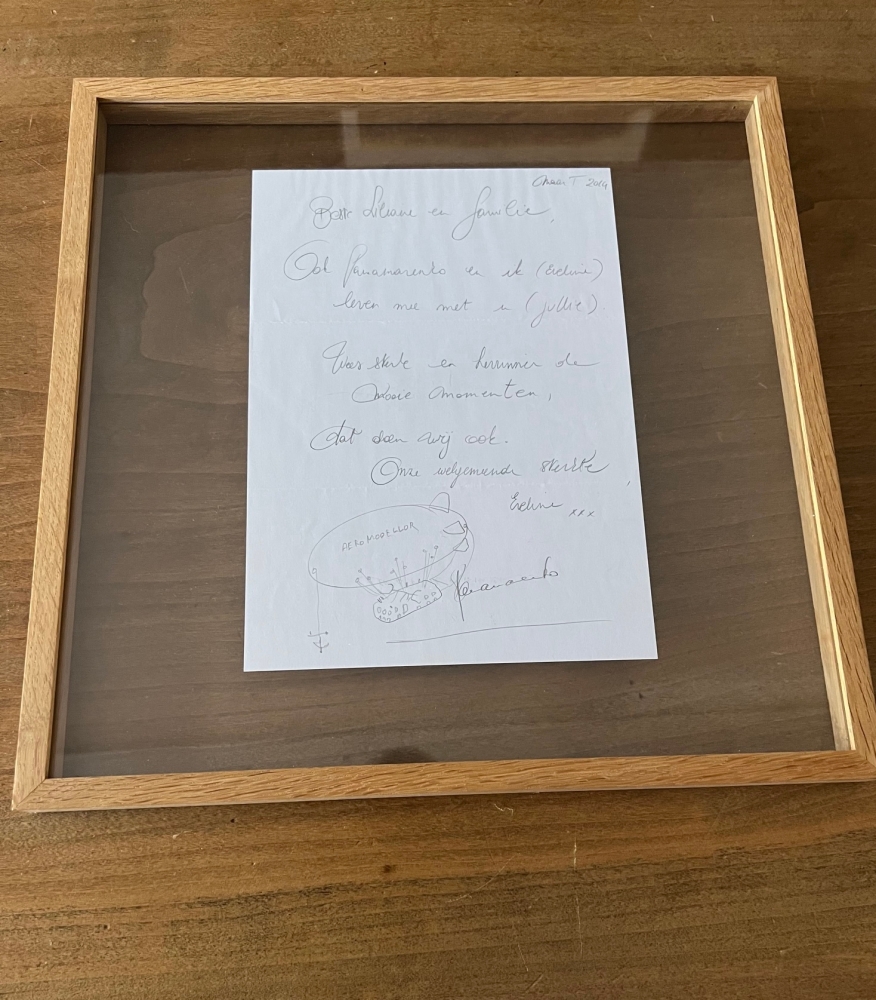 Maart 2014
Beste Liliane en familie,
Ook Panamarenko en ik (Eveline)
leven mee met u (jullie).
Wees sterk en herinner de
mooie momenten,
dat doen wij ook.
Onze welgemeende sterkte,
Eveline xxx
AEROMODELLER
Panamarenko